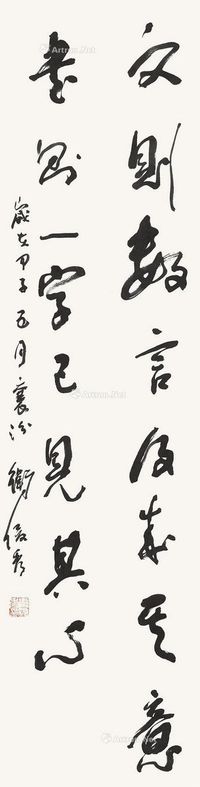 文则数言乃成其意
书则一字已见其心
岁在甲子五月襄汾
卫俊秀
Artron.Net